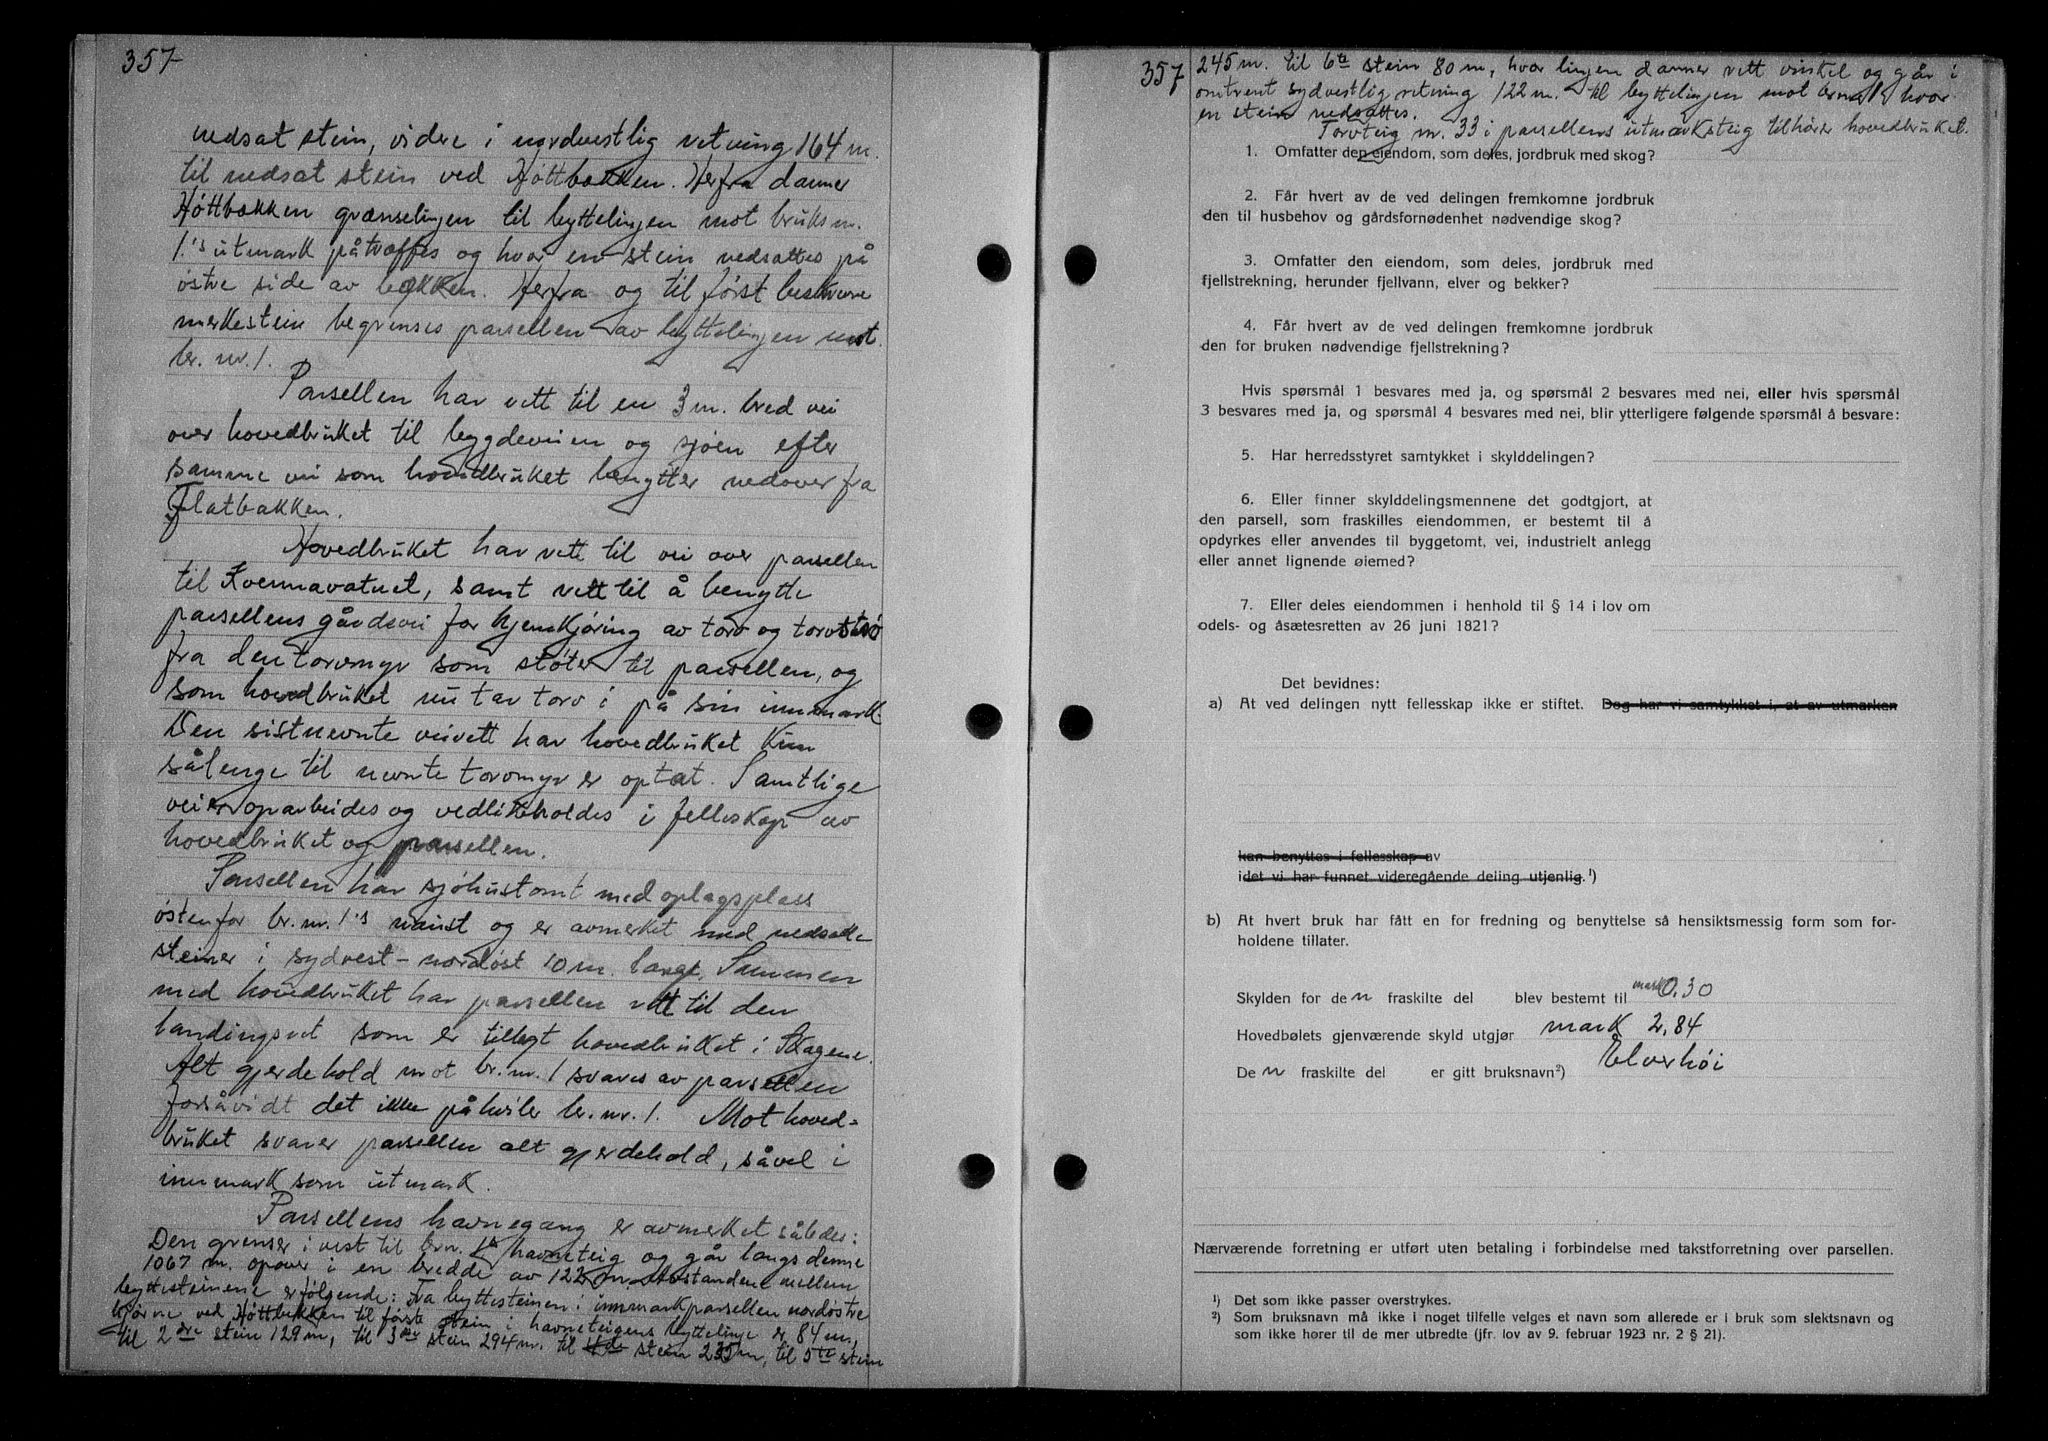 357
nedsat stein, videre i nordvestlig retning 164 m.
til nedsat stein ved Høttbækken. Herfra danner
Høttbækken grænselinjen til byttelinjen mot bruksnr.
1.'s utmark påtræffes og hvor en stein nedsattes på
østre side av bækken. Herfra og til først beskrevne
merkestein begrenses parsellen av byttelinjen mot
br. nr. 1.
Parsellen har rett til en 3 m. bred vei
over hovedbruket til bygdeveien og sjøen efter
samme vei som hovedbruket benytter nedover fra
Flatbakken.
Hovedbruket har rett til vei over parsellen
til Kvernavatnet, samt rett til å benytte
parsellens gårdsvei for hjemkjøring av torv og torvstrø
fra den torvmyr som støter til parsellen, og
som hovedbruket nu tar torv i på sin innmark
Den sistnevnte veirett har hovedbruket kun
sålenge til nevnte torvmyr er optat. Samtlige
veier oparbeides og vedlikeholdes i felleskap av
hovedbruket og parsellen.
Parsellen har sjøhustomt med oplagsplass
østenfor br. nr. 1's naust og er avmerket med nedsatte
steiner i sydvest - nordøst 10 m. langt. Sammen
med hovedbruket har parsellen rett til den
landingsret som er tillagt hovedbruket i Skagene.
Alt gjerdehold mot br. nr. 1 svares av parsellen
forsåvidt det ikke påhviler br. nr. 1. Mot hoved-
bruket svarer parsellen alt gjerdehold, såvel i
innmark som utmark.
Parsellens havnegang er avmerket således:
Den grenser i vest til brnr. 1s havneteig og går langs denne
1067 m. opover i en bredde av 122 m. Avstandene mellem
byttesteinene er følgende: Fra byttesteinen i innmarkparsellen nordøstre
hjørne ved Høttbekken til første stein i havneteigens byttelinje er 84 m,
til 2dre stein 129 m, til 3die stein 294 m. til 4de stein 235 m, til 5te stein
357
245 m. til 6te stein 80 m, hvor linjen danner rett vinkel og går i
omtrent sydvestlig retning 122 m. til byttelinjen mot brnr 1 hvor
en stein nedsattes.
Torvteig nr. 33 i parsellens utmarksteig tilhører hovedbruket.
1. Omfatter den eiendom, som deles, jordbruk med skog?
2. Får hvert av de ved delingen fremkomne jordbruk
den til husbehov og gårdsfornødenhet nødvendige skog?
3. Omfatter den eiendom, som deles, jordbruk med
fjellstrekning, herunder fjellvann, elver og bekker?
4. Får hvert av de ved delingen fremkomne jordbruk
den for bruken nødvendige fjellstrekning?
Hvis spørsmål 1 besvares med ja, og spørsmål 2 besvares med nei, eller hvis spørsmål
3 besvares med ja, og spørsmål 4 besvares med nei, blir ytterligere følgende spørsmål å besvare:
5. Har herredsstyret samtykket i skylddelingen?
6. Eller finner skylddelingsmennene det godtgjort, at
den parsell, som fraskilles eiendommen, er bestemt til å
opdyrkes eller anvendes til byggetomt, vei, industrielt anlegg
eller annet lignende øiemed?
7. Eller deles eiendommen i henhold til § 14 i lov om
odels- og åsætesretten av 26 juni 1821?
Det bevidnes:
a) At ved delingen nytt fellesskap ikke er stiftet. Dog har vi samtykket i, at av utmarken
kan benyttes i fellesskap av
idet vi har funnet videregående deling utjenlig.¹)
b) At hvert bruk har fått en for fredning og benyttelse så hensiktsmessig form som for-
holdene tillater.
Skylden for den fraskilte del blev bestemt til mark 0.30
Hovedbølets gjenværende skyld utgjør mark 2,84
Den fraskilte del er gitt bruksnavn²) Elverhøi
Nærværende forretning er utført uten betaling i forbindelse med takstforretning over parsellen.
¹) Det som ikke passer overstrykes.
²) Som bruksnavn må ikke i noget tilfelle velges et navn som allerede er i bruk som slektsnavn og
som ikke hører til de mer utbredte (jfr. lov av 9. februar 1923 nr. 2 § 21).